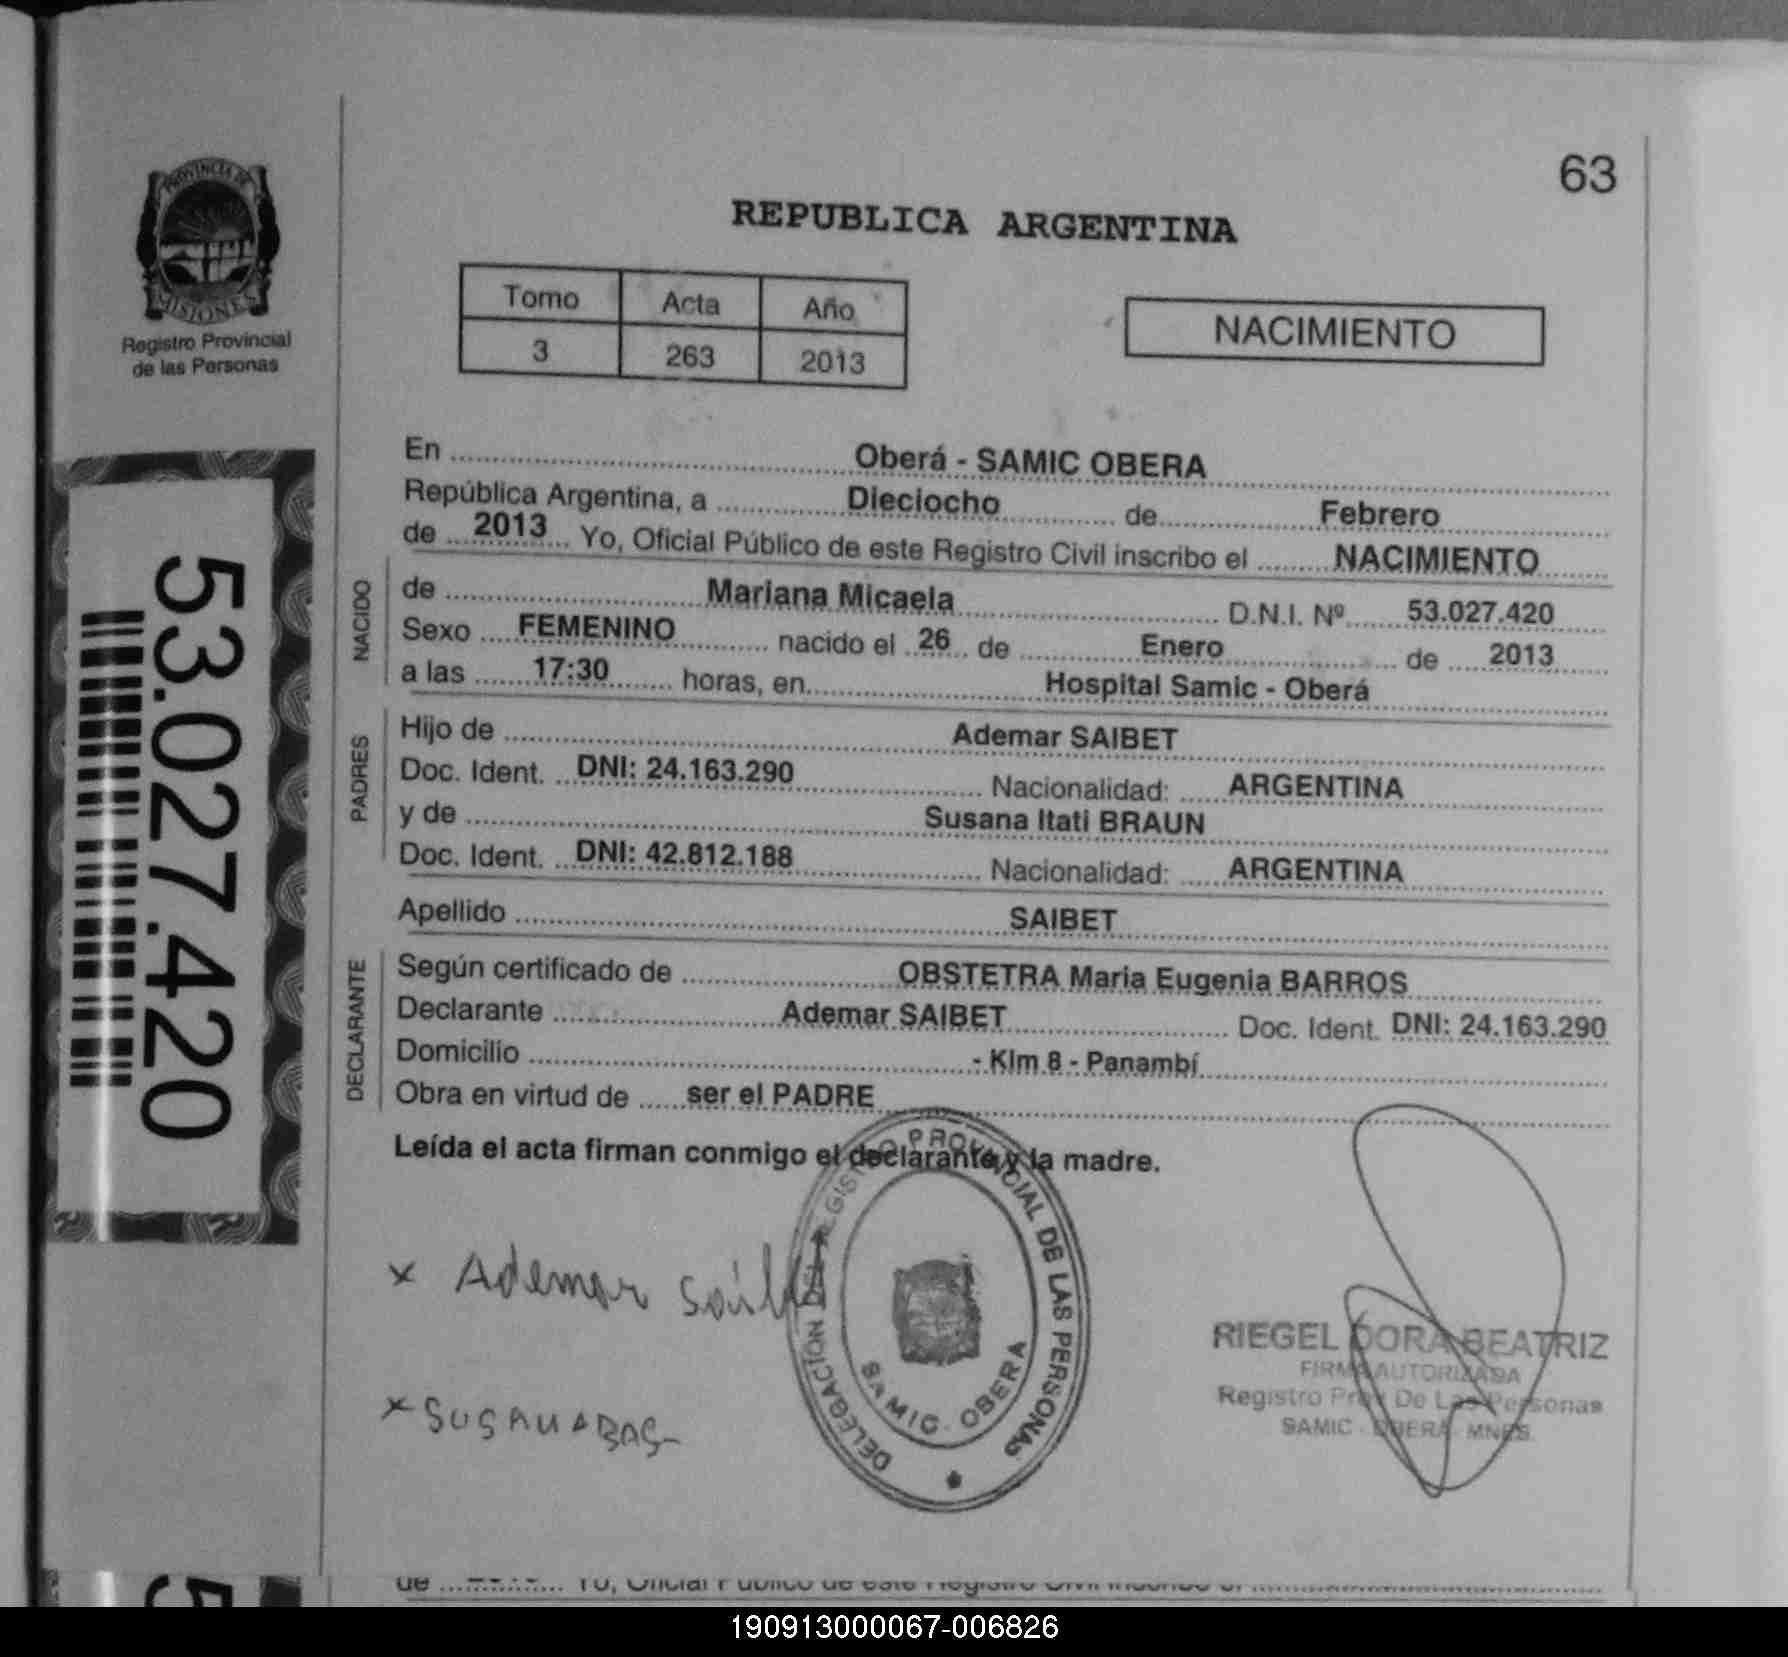 63
PROVINCIA DE
MISIONES
Registro Provincial
de las Personas
REPUBLICA ARGENTINA
Tomo Acta Año
3 263 2013
NACIMIENTO
53.027.420
En Oberá - SAMIC OBERA
República Argentina, a Dieciocho de Febrero
de 2013 Yo, Oficial Público de este Registro Civil inscribo el NACIMIENTO
NACIDO
de Mariana Micaela D.N.I. Nº 53.027.420
Sexo FEMENINO nacido el 26 de Enero de 2013
a las 17:30 horas, en Hospital Samic - Oberá
PADRES
Hijo de Ademar SAIBET
Doc. Ident. DNI: 24.163.290 Nacionalidad: ARGENTINA
y de Susana Itati BRAUN
Doc. Ident. DNI: 42.812.188 Nacionalidad: ARGENTINA
Apellido SAIBET
DECLARANTE
Según certificado de OBSTETRA Maria Eugenia BARROS
Declarante Ademar SAIBET Doc. Ident. DNI: 24.163.290
Domicilio - Klm 8 - Panambí
Obra en virtud de ser el PADRE
Leída el acta firman conmigo el declarante y la madre.
x Ademar
x SUSANA
DELEGACION DEL REGISTRO PROVINCIAL DE LAS PERSONAS
SAMIC - OBERA
RIEGEL DORA BEATRIZ
FIRMA AUTORIZADA
Registro Prov De Las Personas
SAMIC - OBERA - MNES.
de Yo, Oficial Público de este Registro Civil inscribo el
190913000067-006826